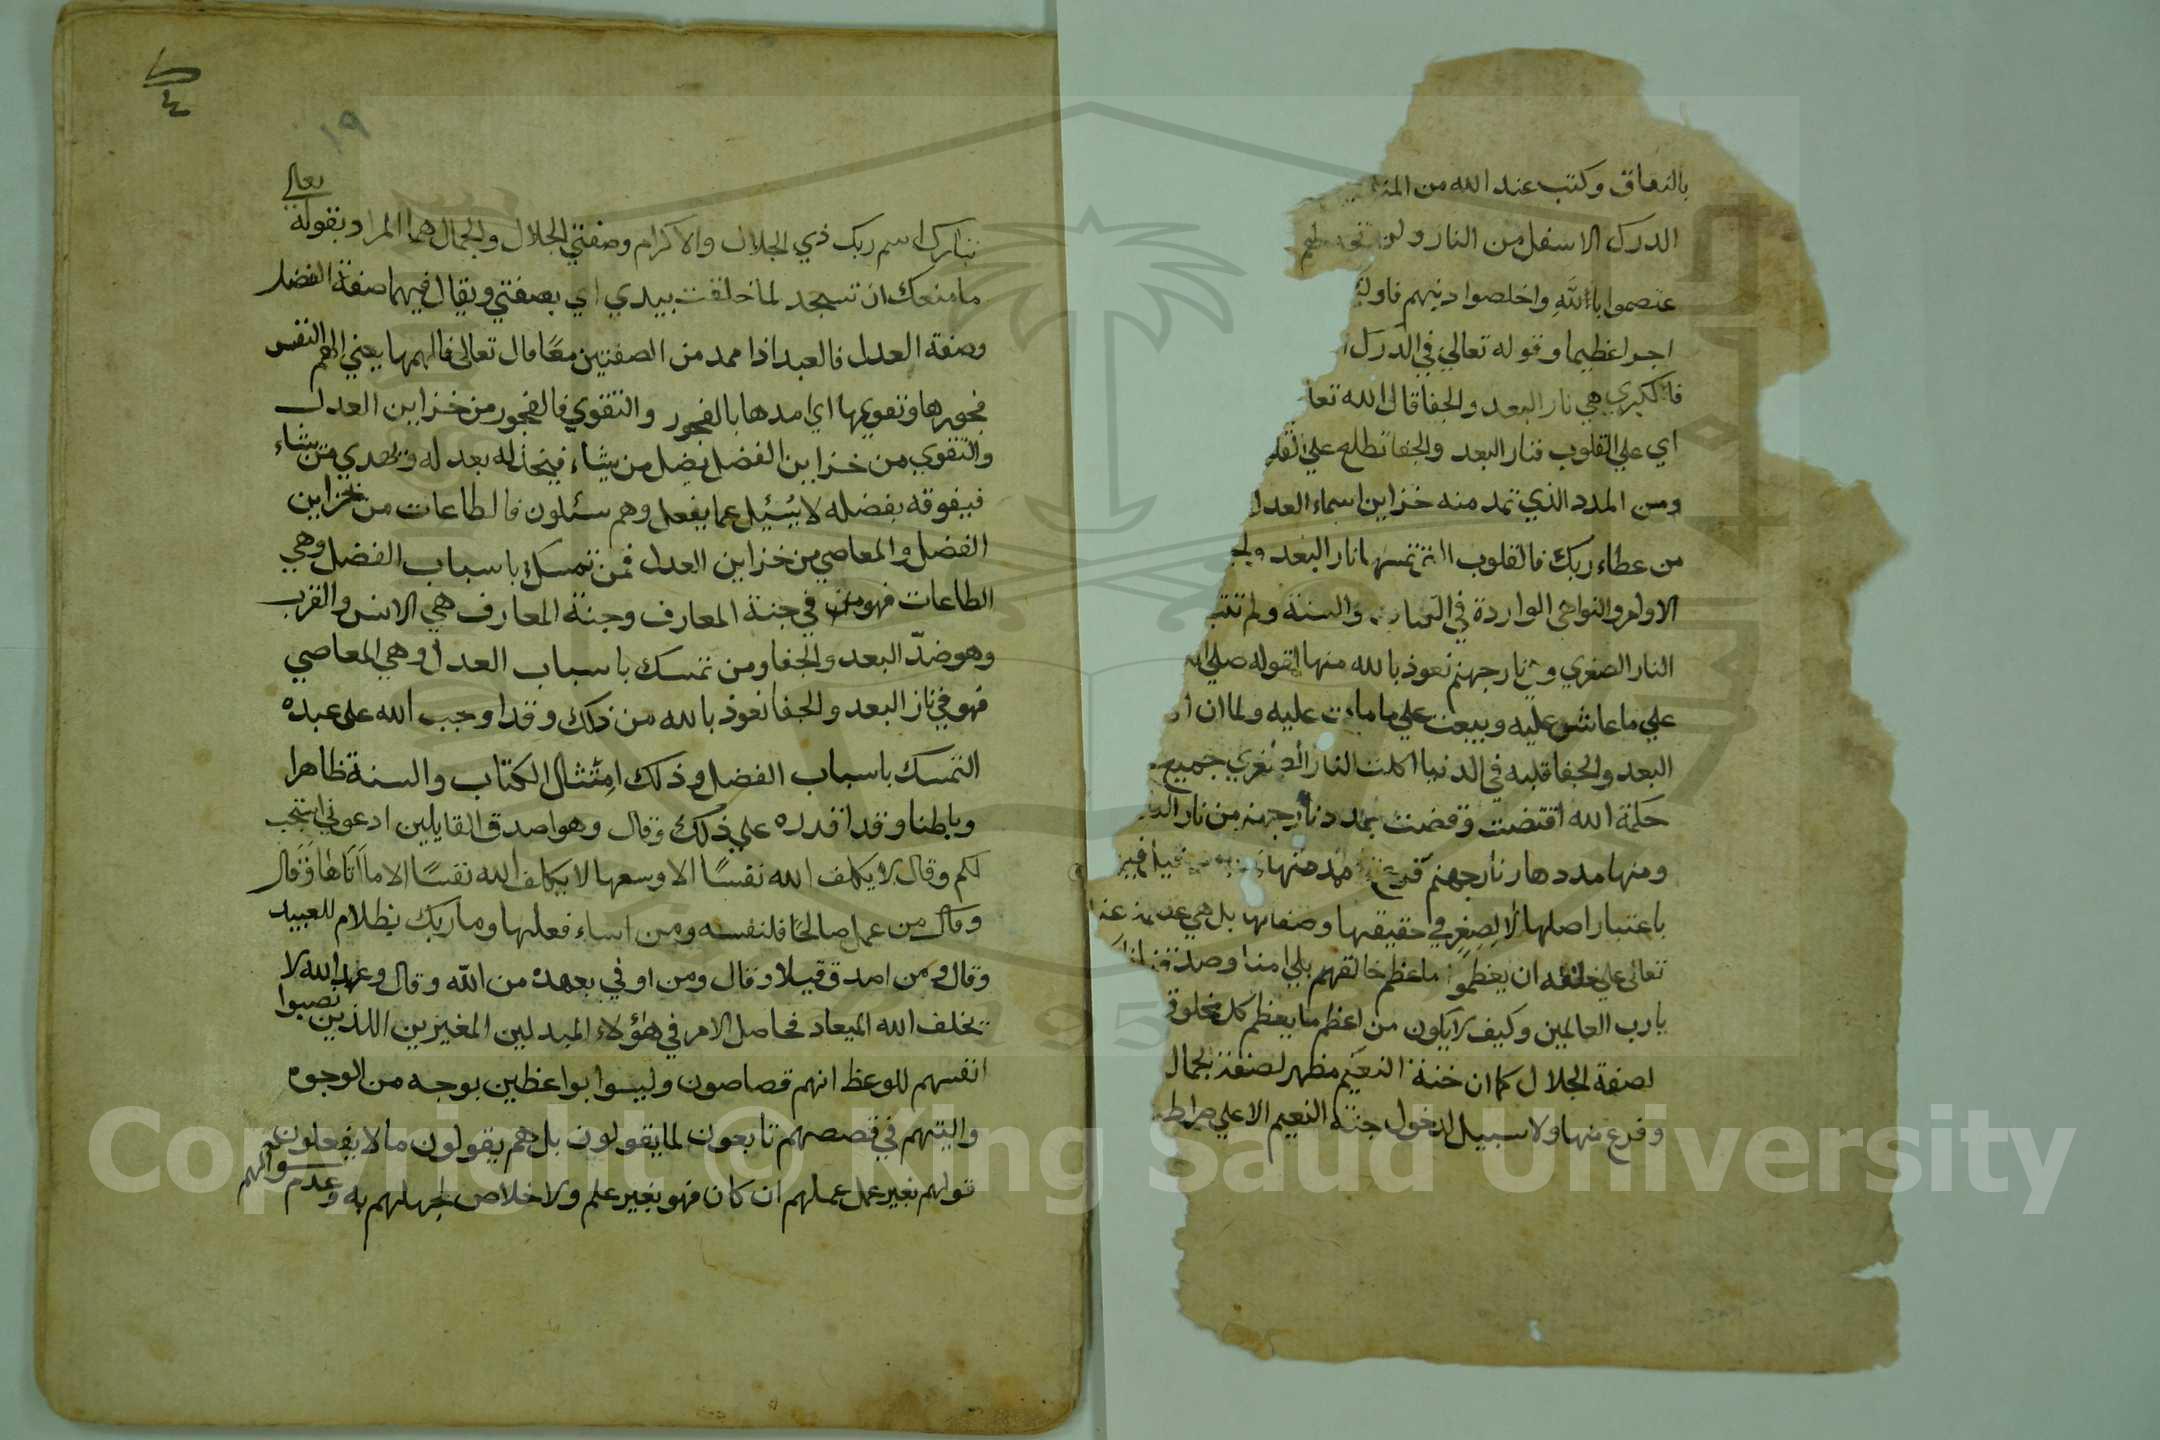 بالنفاق وكتب عند الله من
الدرك الاسفل من النار ولن تجد لهم
عتصموا بالله واخلصوا دينهم فاولئك
اجرا عظيما وقوله تعالي في الدرك
فالكبري هي نار البعد والجفا قال الله تعا
اي علي القلوب فنار البعد والجفا تطلع علي القلو
ومن المدد الذي تمد منه خزاين اسماء العدل
من عطاء ربك فالقلوب التي تمسها نار البعد والج
الاوامر والنواهي الواردة في الكتاب والسنة ولم تتب
النار الصغري وهي نار جهنم نعوذ بالله منها لقوله صلي الله
علي ما عاش عليه ويبعث علي ما مات عليه ولما ان
البعد والجفا قلبه في الدنيا اكلت النار جميع
حكمة الله اقتضت وقضت بمدد نار جهنم من نار
ومنها مددها نار جهنم فرع
باعتبار اصلها لا لصغر في حقيقتها وصفاتها بل هي
تعالي علي خلقه ان يعظموا ما عظم خالقهم بلي امنا وصدقنا
يا رب العالمين وكيف لا يكون من اعظم ما يعظم كل مخلوق
لصفة الجلال كما ان جنة النعيم مظهر لصفة الجمال
وفرع منها ولا سبيل لدخول جنة النعيم الا علي صراط
١٩
تبارك اسم ربك ذي الجلال والاكرام وصفتي الجلال والجمال هما المراد بقوله تعالي
ما منعك ان تسجد لما خلقت بيدي اي بصفتي ويقال فيهما صفة الفضل
وصفة العدل فالعبد اذا ممد من الصفتين معًا قال تعالى فالهمها يعني الهم النفس
فجورها وتقويها اي امدها بالفجور والتقوي فالفجور من خزاين العدل
والتقوي من خزاين الفضل يضل من يشاء فيخذله بعدله ويهدي من يشاء
فيوفقه بفضله لا يسئل عما يفعل وهم يسئلون فالطاعات من خزاين
الفضل والمعاصي من خزاين العدل فمن تمسك باسباب الفضل وهي
الطاعات فهو من في جنة المعارف وجنة المعارف هي الانس والقرب
وهو ضدّ البعد والجفا ومن تمسك باسباب العدل وهي المعاصي
فهو في نار البعد والجفا نعوذ بالله من ذلك وقد اوجب الله على عبده
التمسك باسباب الفضل وذلك امتثال الكتاب والسنة ظاهرا
وباطنا وقد اقدره علي ذلك وقال وهو اصدق القايلين ادعوني استجب
لكم وقال لا يكلف الله نفسًا الا وسعها لا يكلف الله نفسًا الا ما اتاها وقال
وقال من عمل صالحًا فلنفسه ومن اساء فعليها وما ربك بظلام للعبيد
وقال ومن اصدق قيلا وقال ومن اوفي بعهده من الله وقال وعد الله لا
يخلف الله الميعاد فحاصل الامر في هؤلاء المبدلين المغيرين اللذين نصبوا
انفسهم للوعظ انهم قصاصون وليسوا بواعظين بوجه من الوجوه
وليتهم في قصصهم تابعون لما يقولون بل هم يقولون ما لا يفعلون
قولهم بغير عمل عملهم ان كان فهو بغير علم ولا اخلاص لجهلهم به وعدم سوالهم
Copyright © King Saud University
1957